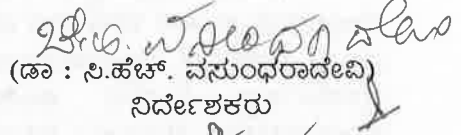 (ಡಾ : ಸಿ.ಹೆಚ್. ವಸುಂಧರಾದೇವಿ)
ನಿರ್ದೇಶಕರು